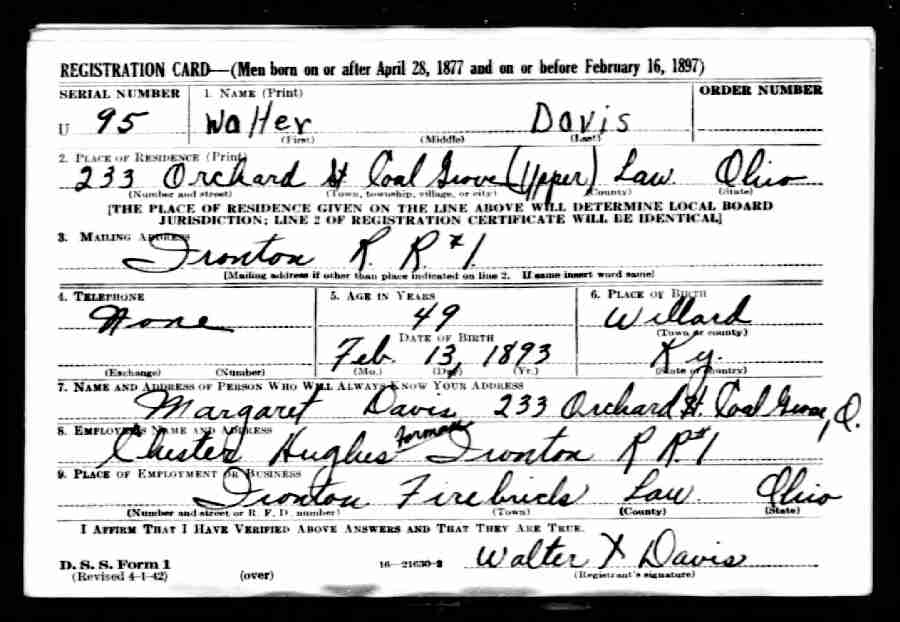 REGISTRATION CARD—(Men born on or after April 28, 1877 and on or before February 16, 1897)
SERIAL NUMBER 1. NAME (Print) ORDER NUMBER
U 95 Walter Davis
(First) (Middle) (Last)
2. PLACE OF RESIDENCE (Print)
233 Orchard St. Coal Grove (Upper) Law. Ohio
(Number and street) (Town, township, village, or city) (County) (State)
[THE PLACE OF RESIDENCE GIVEN ON THE LINE ABOVE WILL DETERMINE LOCAL BOARD
JURISDICTION; LINE 2 OF REGISTRATION CERTIFICATE WILL BE IDENTICAL]
3. MAILING ADDRESS
Ironton R. R. #1.
[Mailing address if other than place indicated on line 2. If same insert word same]
4. TELEPHONE 5. AGE IN YEARS 6. PLACE OF BIRTH
None 49 Willard
DATE OF BIRTH (Town or county)
Feb. 13, 1893 Ky.
(Exchange) (Number) (Mo.) (Day) (Yr.) (State or country)
7. NAME AND ADDRESS OF PERSON WHO WILL ALWAYS KNOW YOUR ADDRESS
Margaret Davis 233 Orchard St. Coal Grove, O.
8. EMPLOYER'S NAME AND ADDRESS
Chester Hughes forman Ironton R R. #1
9. PLACE OF EMPLOYMENT OR BUSINESS
Ironton Firebrick Law Ohio
(Number and street or R. F. D. number) (Town) (County) (State)
I AFFIRM THAT I HAVE VERIFIED ABOVE ANSWERS AND THAT THEY ARE TRUE.
D. S. S. Form 1 Walter X Davis
(Revised 4-1-42) (over) 16—21630-2 (Registrant's signature)